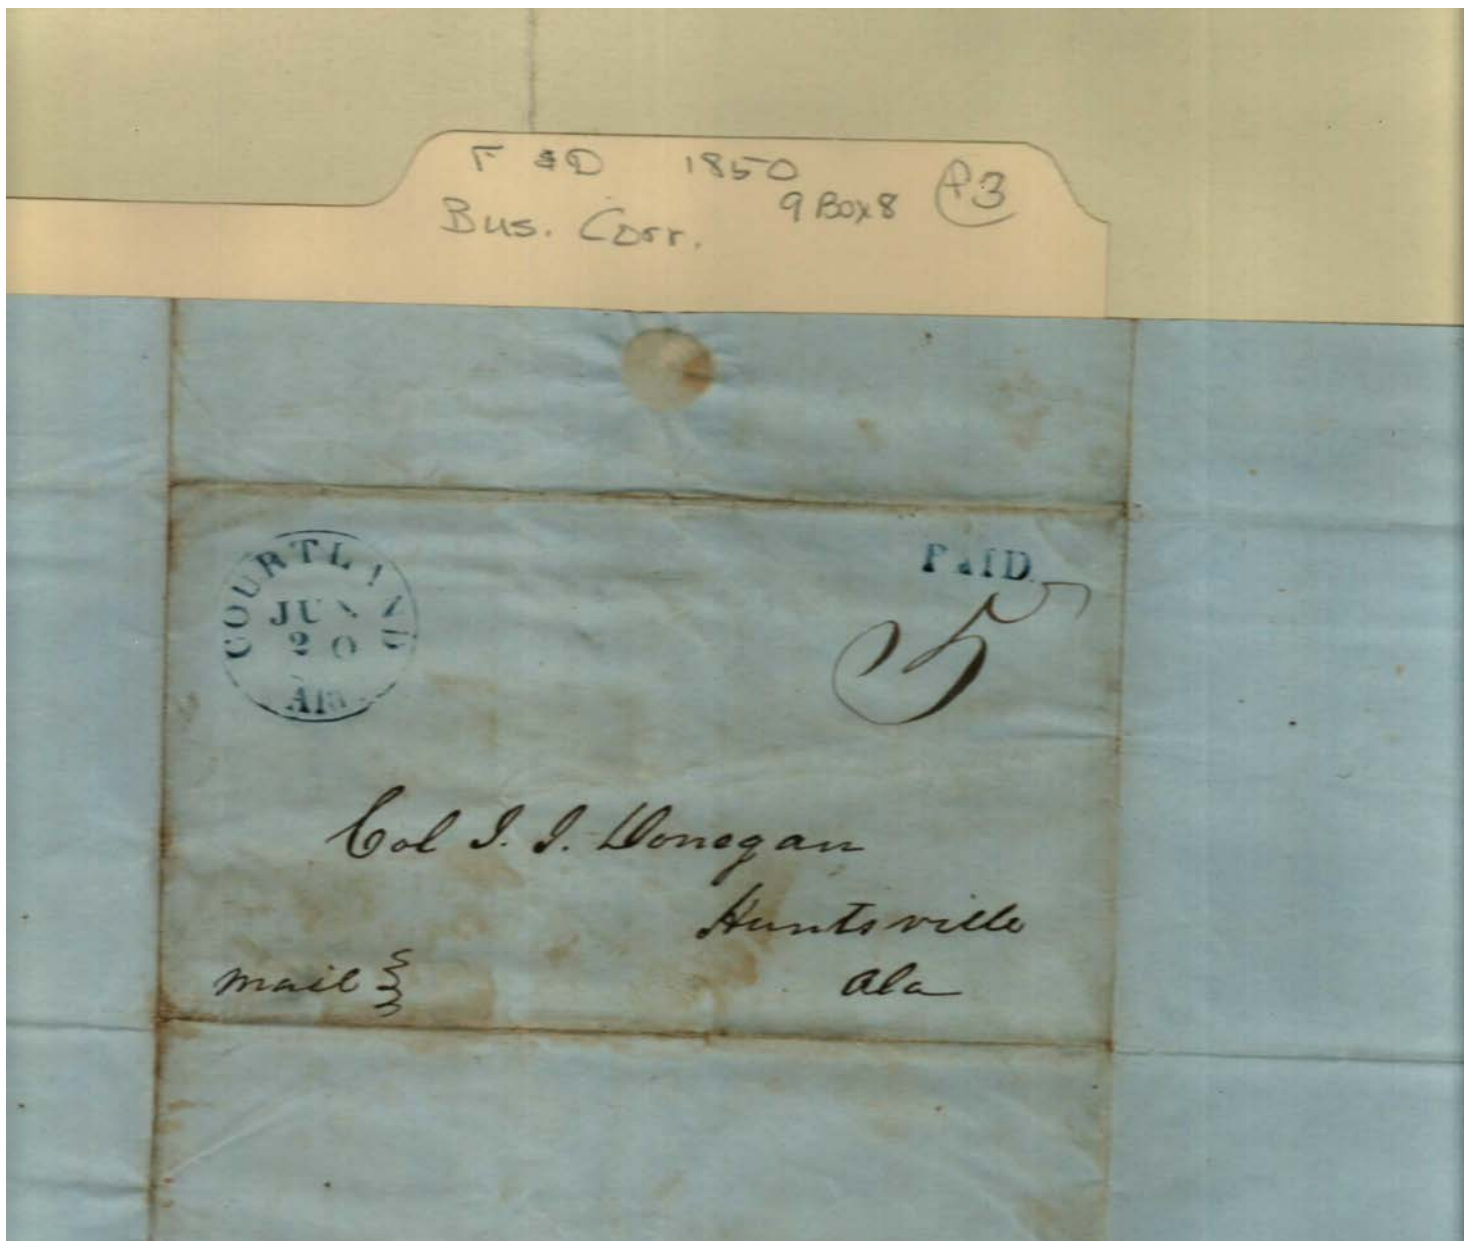 F & D 1850
9 Box 8 P3
Bus. Corr.
COURTLAND
JUN
20
Ala
PAID
5
Col J. J. Donegan
Huntsville
Ala
Mail